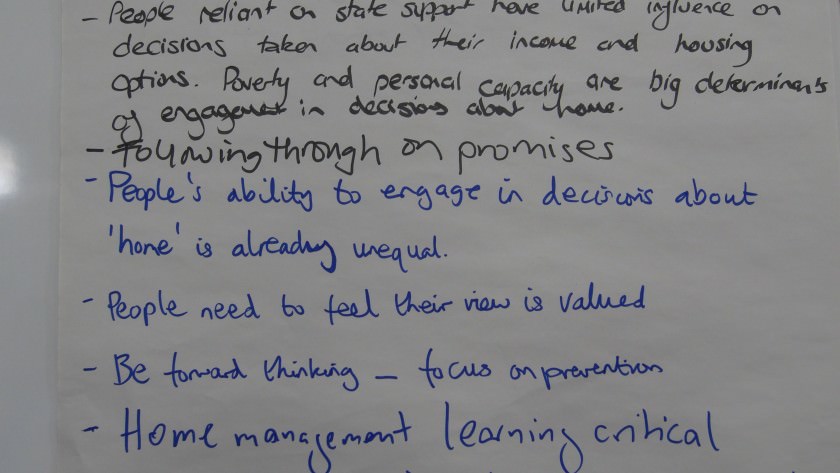 - People reliant on state support have limited influence on
decisions taken about their income and housing
options. Poverty and personal capacity are big determinants
of engagement in decisions about home.
- Following through on promises
- People's ability to engage in decisions about
'home' is already unequal.
- People need to feel their view is valued
- Be forward thinking - focus on prevention
- Home management learning critical